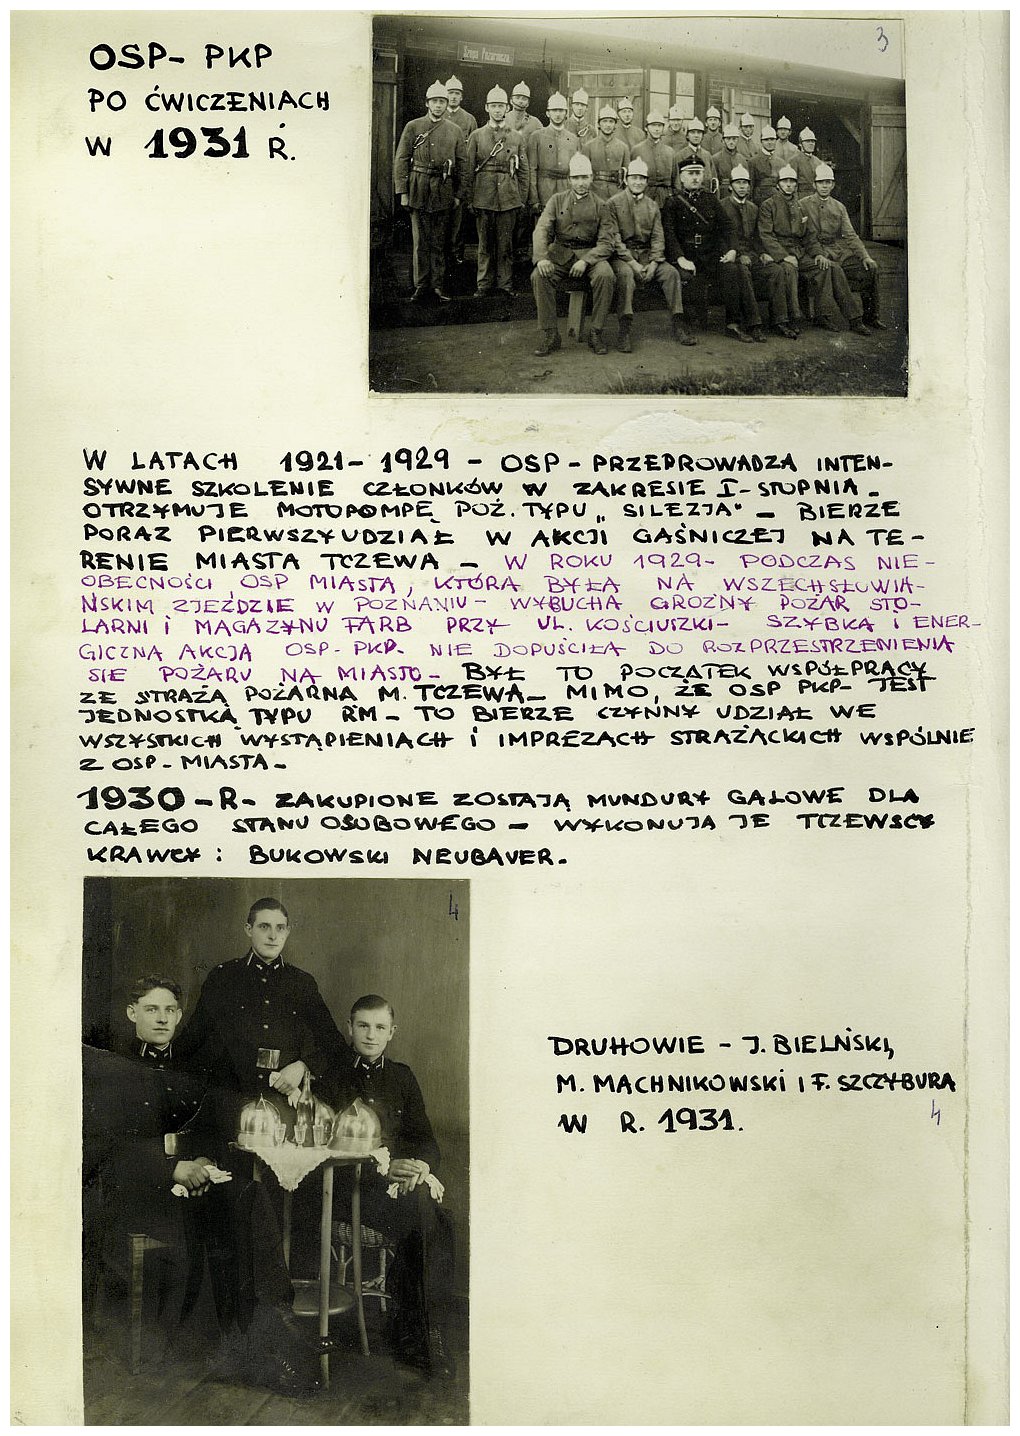 OSP- PKP
PO ĆWICZENIACH
W 1931 R.
3
Szopa Pożarnicza
W LATACH 1921-1929 - OSP - PRZEPROWADZA INTEN-
SYWNE SZKOLENIE CZŁONKÓW W ZAKRESIE I-STOPNIA.
OTRZYMUJE MOTOPOMPĘ POŻ. TYPU „SILEZJA" - BIERZE
PORAZ PIERWSZY UDZIAŁ W AKCJI GAŚNICZEJ NA TE-
RENIE MIASTA TCZEWA - W ROKU 1929- PODCZAS NIE-
OBECNOŚCI OSP MIASTA, KTÓRA BYŁA NA WSZECHSŁOWIA-
ŃSKIM ZJEŹDZIE W POZNANIU - WYBUCHA GROŹNY POŻAR STO-
LARNI i MAGAZYNU FARB PRZY UL. KOŚCIUSZKI- SZYBKA i ENER-
GICZNA AKCJA OSP- PKP. NIE DOPUŚCIŁA DO ROZPRZESTRZENIENIA
SIĘ POŻARU NA MIASTO - BYŁ TO POCZĄTEK WSPÓŁPRACY
ZE STRAŻĄ POŻARNA M. TCZEWA - MIMO, ŻE OSP PKP- JEST
JEDNOSTKĄ TYPU RM - TO BIERZE CZYNNY UDZIAŁ WE
WSZYSTKICH WYSTĄPIENIACH i IMPREZACH STRAŻACKICH WSPÓLNIE
Z OSP - MIASTA -
1930 - R - ZAKUPIONE ZOSTAJĄ MUNDURY GALOWE DLA
CAŁEGO STANU OSOBOWEGO - WYKONUJĄ JE TCZEWSCY
KRAWCY : BUKOWSKI NEUBAUER -
4
DRUHOWIE - J. BIELŃSKI,
M. MACHNIKOWSKI I F. SZCZYBURA
4
W R. 1931.